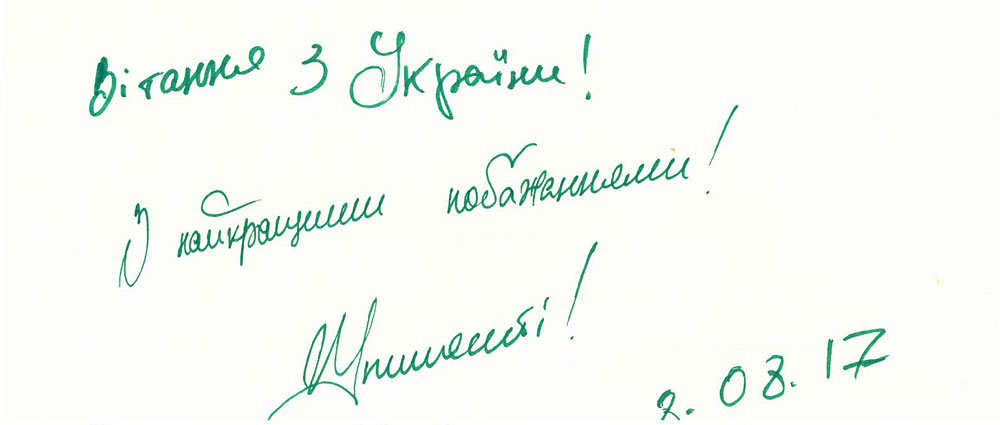 Вітання з України!
З найкращими побажаннями!
2. 08. 17